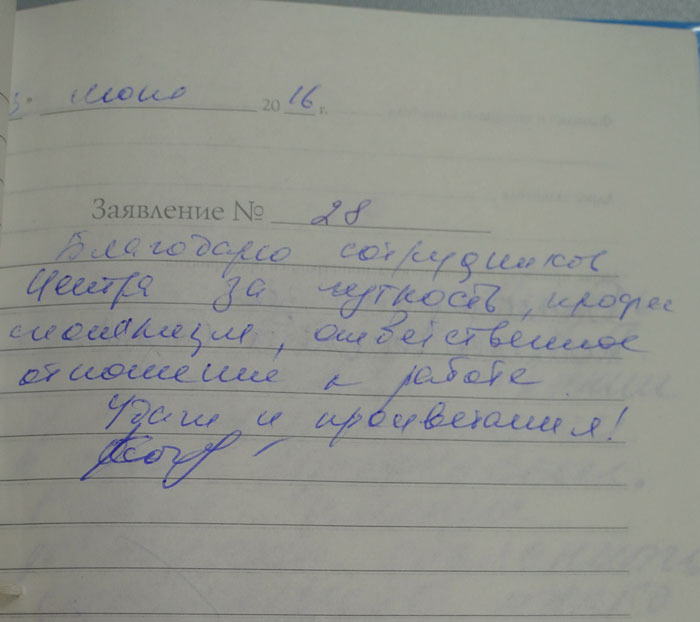 июно 2016 г.
Заявление № 28
Благодарю сотрудников
центра за чуткость, професс
сионализм, ответственное
отношение к работе
Удачи и процветания!